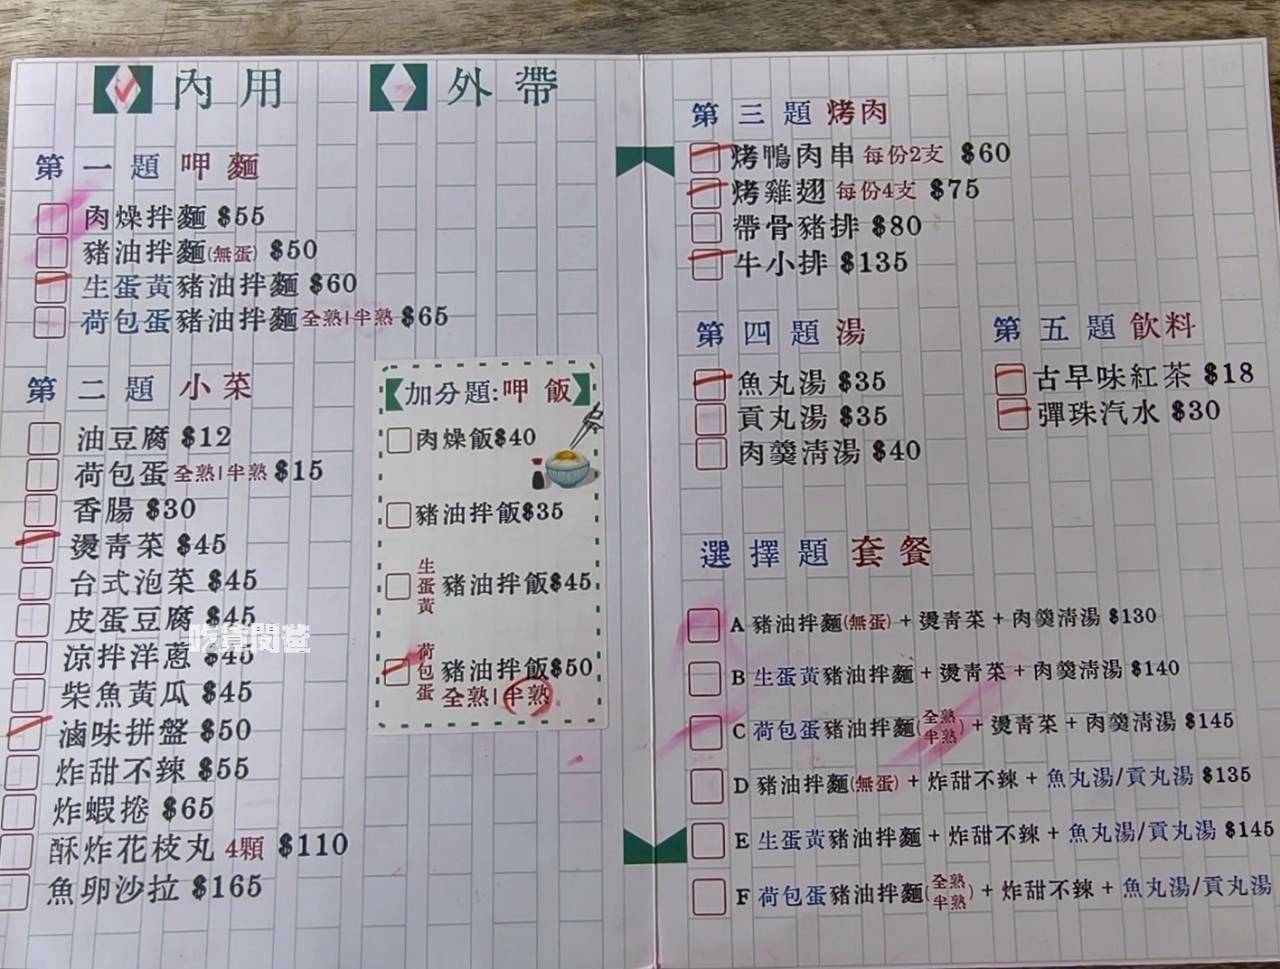 內用 外帶
第一題 呷麵
肉燥拌麵 $55
豬油拌麵(無蛋) $50
生蛋黃豬油拌麵 $60
荷包蛋豬油拌麵 全熟|半熟 $65
第二題 小菜
油豆腐 $12
荷包蛋 全熟|半熟 $15
香腸 $30
燙青菜 $45
台式泡菜 $45
皮蛋豆腐 $45
涼拌洋蔥 $45
柴魚黃瓜 $45
滷味拼盤 $50
炸甜不辣 $55
炸蝦捲 $65
酥炸花枝丸 4顆 $110
魚卵沙拉 $165
加分題:呷飯
肉燥飯$40
豬油拌飯$35
生蛋黃 豬油拌飯$45
荷包蛋 豬油拌飯$50
全熟|半熟
第三題 烤肉
烤鴨肉串 每份2支 $60
烤雞翅 每份4支 $75
帶骨豬排 $80
牛小排 $135
第四題 湯
魚丸湯 $35
貢丸湯 $35
肉羹清湯 $40
第五題 飲料
古早味紅茶 $18
彈珠汽水 $30
選擇題 套餐
A 豬油拌麵(無蛋) + 燙青菜 + 肉羹清湯 $130
B 生蛋黃豬油拌麵 + 燙青菜 + 肉羹清湯 $140
C 荷包蛋豬油拌麵(全熟半熟) + 燙青菜 + 肉羹清湯 $145
D 豬油拌麵(無蛋) + 炸甜不辣 + 魚丸湯/貢丸湯 $135
E 生蛋黃豬油拌麵 + 炸甜不辣 + 魚丸湯/貢丸湯 $145
F 荷包蛋豬油拌麵(全熟半熟) + 炸甜不辣 + 魚丸湯/貢丸湯